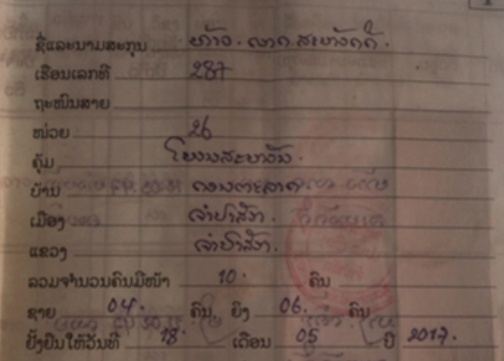 ຊື່ແລະນາມສະກຸນ ທ້າວ
ເຮືອນເລກທີ 287
ຖະໜົນສາຍ
ໜ່ວຍ 26
ຄຸ້ມ ໂພນສະຫວັນ
ບ້ານ
ເມືອງ ຈຳປາສັກ
ແຂວງ ຈຳປາສັກ
ລວມຈຳນວນຄົນມີໜ້າ 10 ຄົນ
ຊາຍ 04 ຄົນ, ຍິງ 06 ຄົນ
ຢັ້ງຢືນໃຫ້ວັນທີ 18 ເດືອນ 05 ປີ 2017